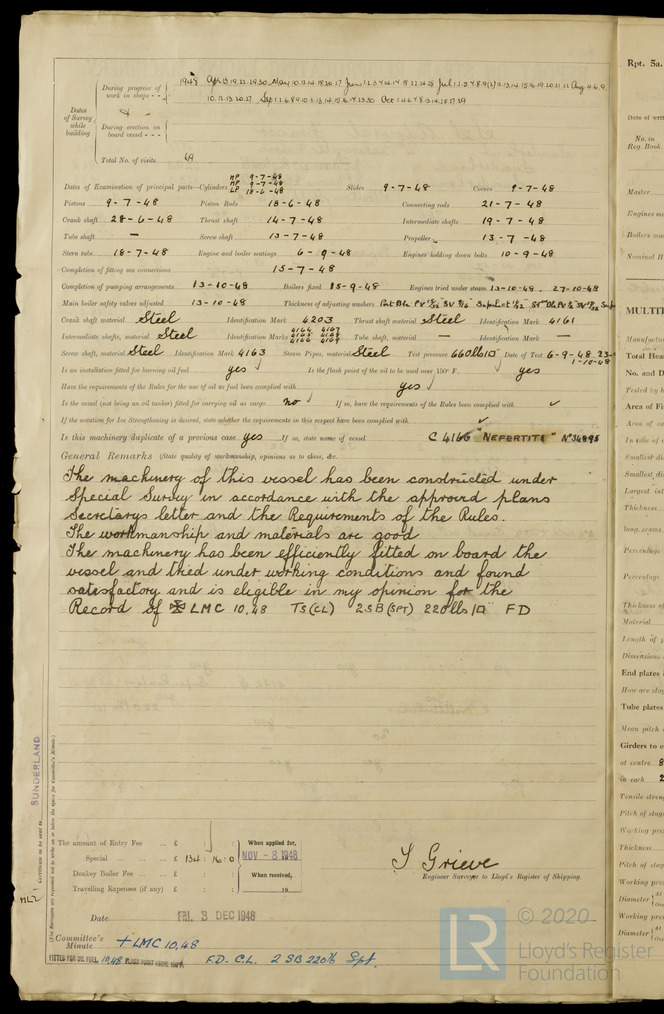 1948 Apr 13.19.22.29.30 May 10.12.14.18.20.27 June 1.2.3.4.10.14.18.22.24.28 Jul 1.2.5.7.8.9(2)12.13.14.15.16.19.20.21.22 Aug 4.6.9.
During progress of work in shops - - 10.12.13.20.27. Sep 1.2.6.8.9.10.13.14.15.16.19.23.30 Oct 1.4.6.7.8.13.14.25.27.29
Dates of Survey while building
During erection on board vessel - - -
Total No. of visits 69
Dates of Examination of principal parts—Cylinders HP 9-7-48 MP 9-7-48 LP 18-6-48 Slides 9-7-48 Covers 9-7-48
Pistons 9-7-48 Piston Rods 18-6-48 Connecting rods 21-7-48
Crank shaft 28-6-48 Thrust shaft 14-7-48 Intermediate shafts 19-7-48
Tube shaft — Screw shaft 13-7-48 Propeller 13-7-48
Stern tube 18-7-48 Engine and boiler seatings 6-9-48 Engines holding down bolts 10-9-48
Completion of fitting sea connections 15-7-48
Completion of pumping arrangements 13-10-48 Boilers fixed 15-9-48 Engines tried under steam 13-10-48. 27-10-48
Main boiler safety valves adjusted 13-10-48 Thickness of adjusting washers
Crank shaft material Steel Identification Mark 4203 Thrust shaft material Steel Identification Mark 4161
Intermediate shafts, material Steel Identification Marks 4164 4165 4166 4167 4168 4169 Tube shaft, material — Identification Mark —
Screw shaft, material Steel Identification Mark 4163 Steam Pipes, material Steel Test pressure 660 lb/□" Date of Test 6-9-48. 23-
1-10-48
Is an installation fitted for burning oil fuel yes Is the flash point of the oil to be used over 150° F. yes
Have the requirements of the Rules for the use of oil as fuel been complied with yes
Is the vessel (not being an oil tanker) fitted for carrying oil as cargo no If so, have the requirements of the Rules been complied with ✓
If the notation for Ice Strengthening is desired, state whether the requirements in this respect have been complied with ✓
Is this machinery duplicate of a previous case yes If so, state name of vessel C 4166 "NEFERTITE" No 34895
General Remarks (State quality of workmanship, opinions as to class, &c.
The machinery of this vessel has been constructed under
Special Survey in accordance with the approved plans
Secretarys letter and the Requirements of the Rules.
The workmanship and materials are good
The machinery has been efficiently fitted on board the
vessel and tried under working conditions and found
satisfactory and is eligible in my opinion for the
Record of ✠ LMC 10,48 TS(CL) 2SB(SPT) 220 lbs/□" FD
SUNDERLAND
Certificate to be sent to
(The Surveyors are requested not to write on or below the space for Committee's Minute.)
The amount of Entry Fee ... £ : : When applied for,
Special ... ... £ 134 : 16 : 0 NOV - 8 1948
Donkey Boiler Fee ... £ : : When received,
Travelling Expenses (if any) £ : : 19
T Grieve
Engineer Surveyor to Lloyd's Register of Shipping.
Date FRI. 3 DEC 1948
Committee's Minute + LMC 10,48
FITTED FOR OIL FUEL 10,48 FLASH POINT ABOVE 150°F. F.D. C.L. 2 SB 220 lb Spt.
Rpt. 5a.
No. in Reg. Book.
Master
MULTI
© 2020
LR
Lloyd's Register
Foundation